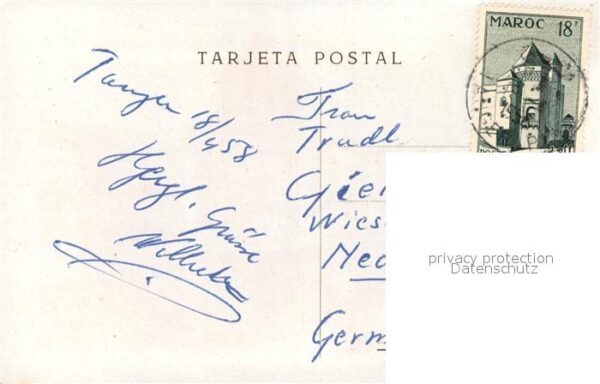 TARJETA POSTAL
MAROC 18F
POSTES
Tanger 18/4 58
Herzl. Grüsse
Wilhelm
Frau
Trudl
Wies
Nec
Germ
privacy protection
Datenschutz